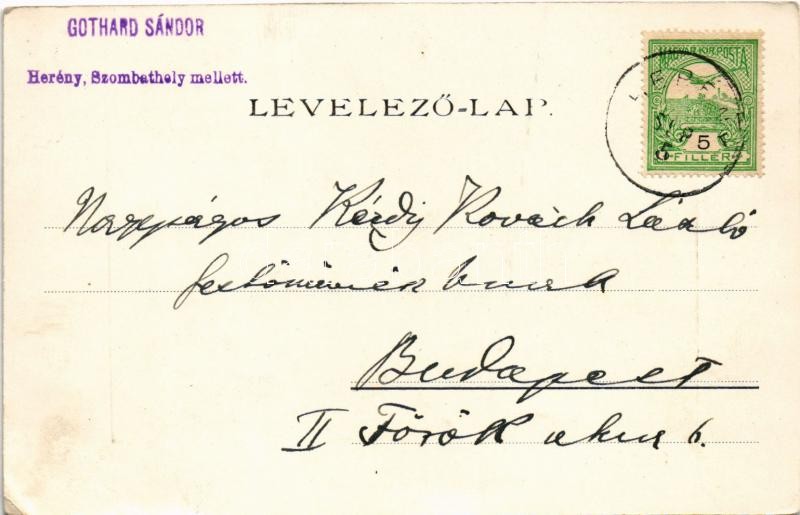 GOTHARD SÁNDOR
Herény, Szombathely mellett.
LEVELEZŐ-LAP.
MAGYAR KIR. POSTA
5
FILLÉR
Nagyságos Kézdy Kovách László
festőművész úrnak
Budapest
II Török utca 6.